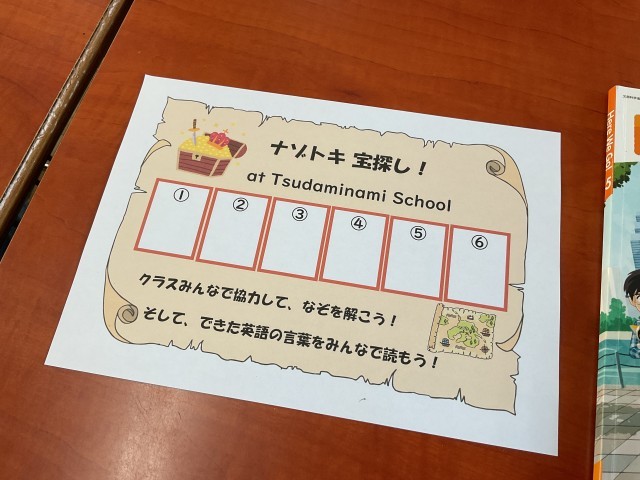 ナゾトキ 宝探し！
at Tsudaminami School
① ② ③ ④ ⑤ ⑥
クラスみんなで協力して、なぞを解こう！
そして、できた英語の言葉をみんなで読もう！
Here We Go! 5